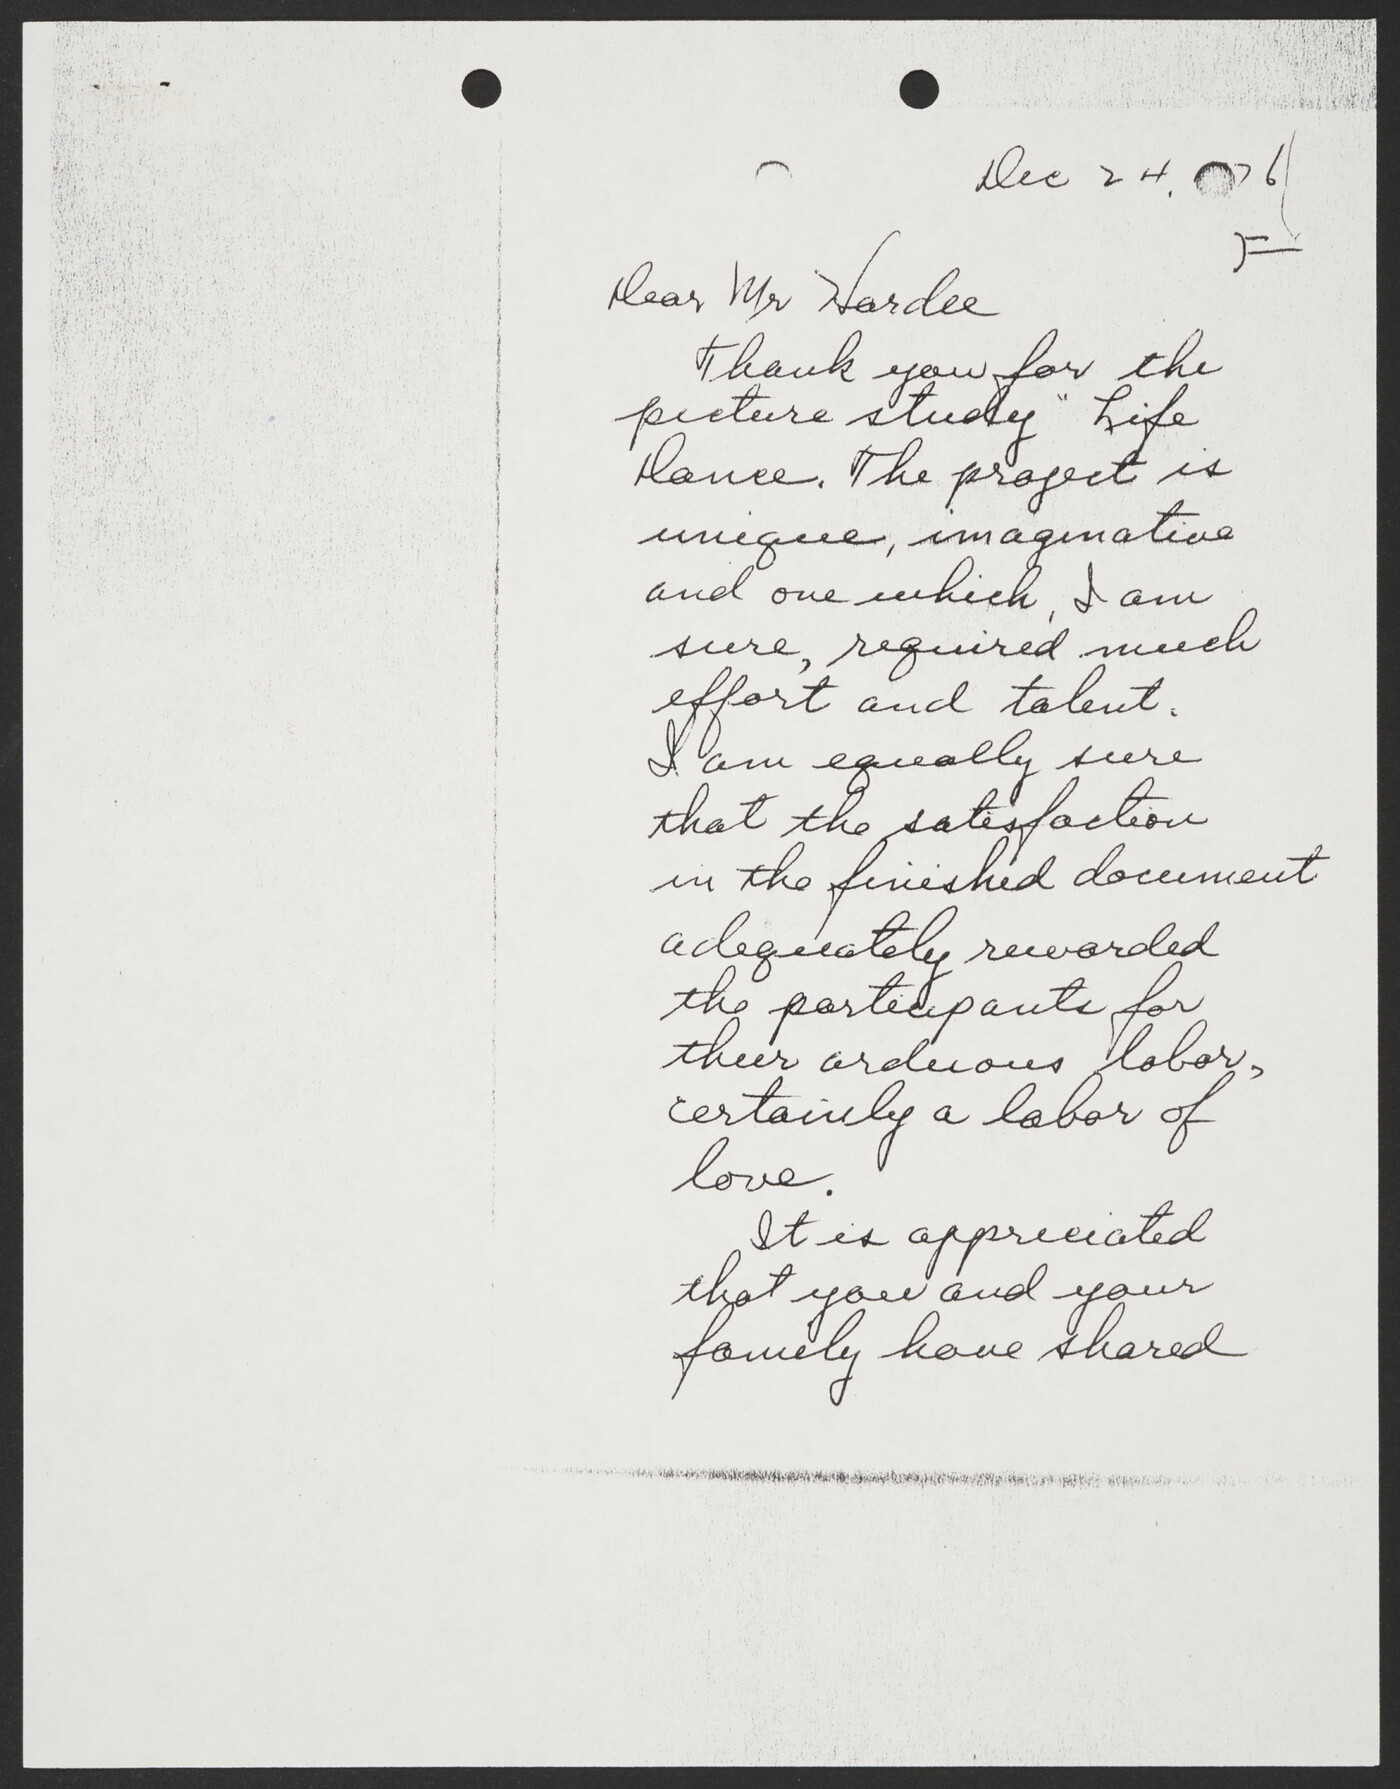 Dec 24, 76
F
Dear Mr Hardee
Thank you for the
picture study "Life
Dance. The project is
unique, imaginative
and one which, I am
sure, required much
effort and talent.
I am equally sure
that the satisfaction
in the finished document
adequately rewarded
the participants for
their arduous labor,
certainly a labor of
love.
It is appreciated
that you and your
family have shared